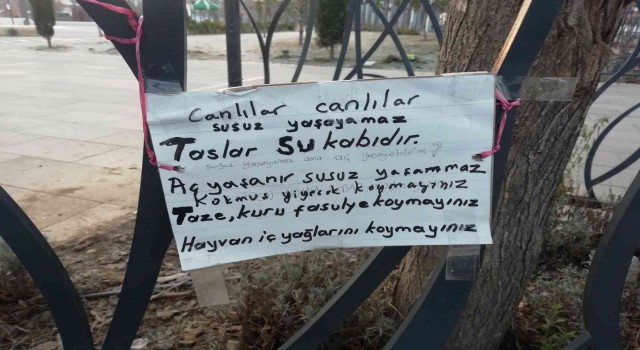 Canlılar canlılar
susuz yaşayamaz
Taslar Su kabıdır.
susuz yaşayamaz ama aç yaşayabilir
Aç yaşanır susuz yaşammaz
Kokmuş yiyecek koymayınız
Taze, kuru fasulye koymayınız
Hayvan iç yağlarını koymayınız